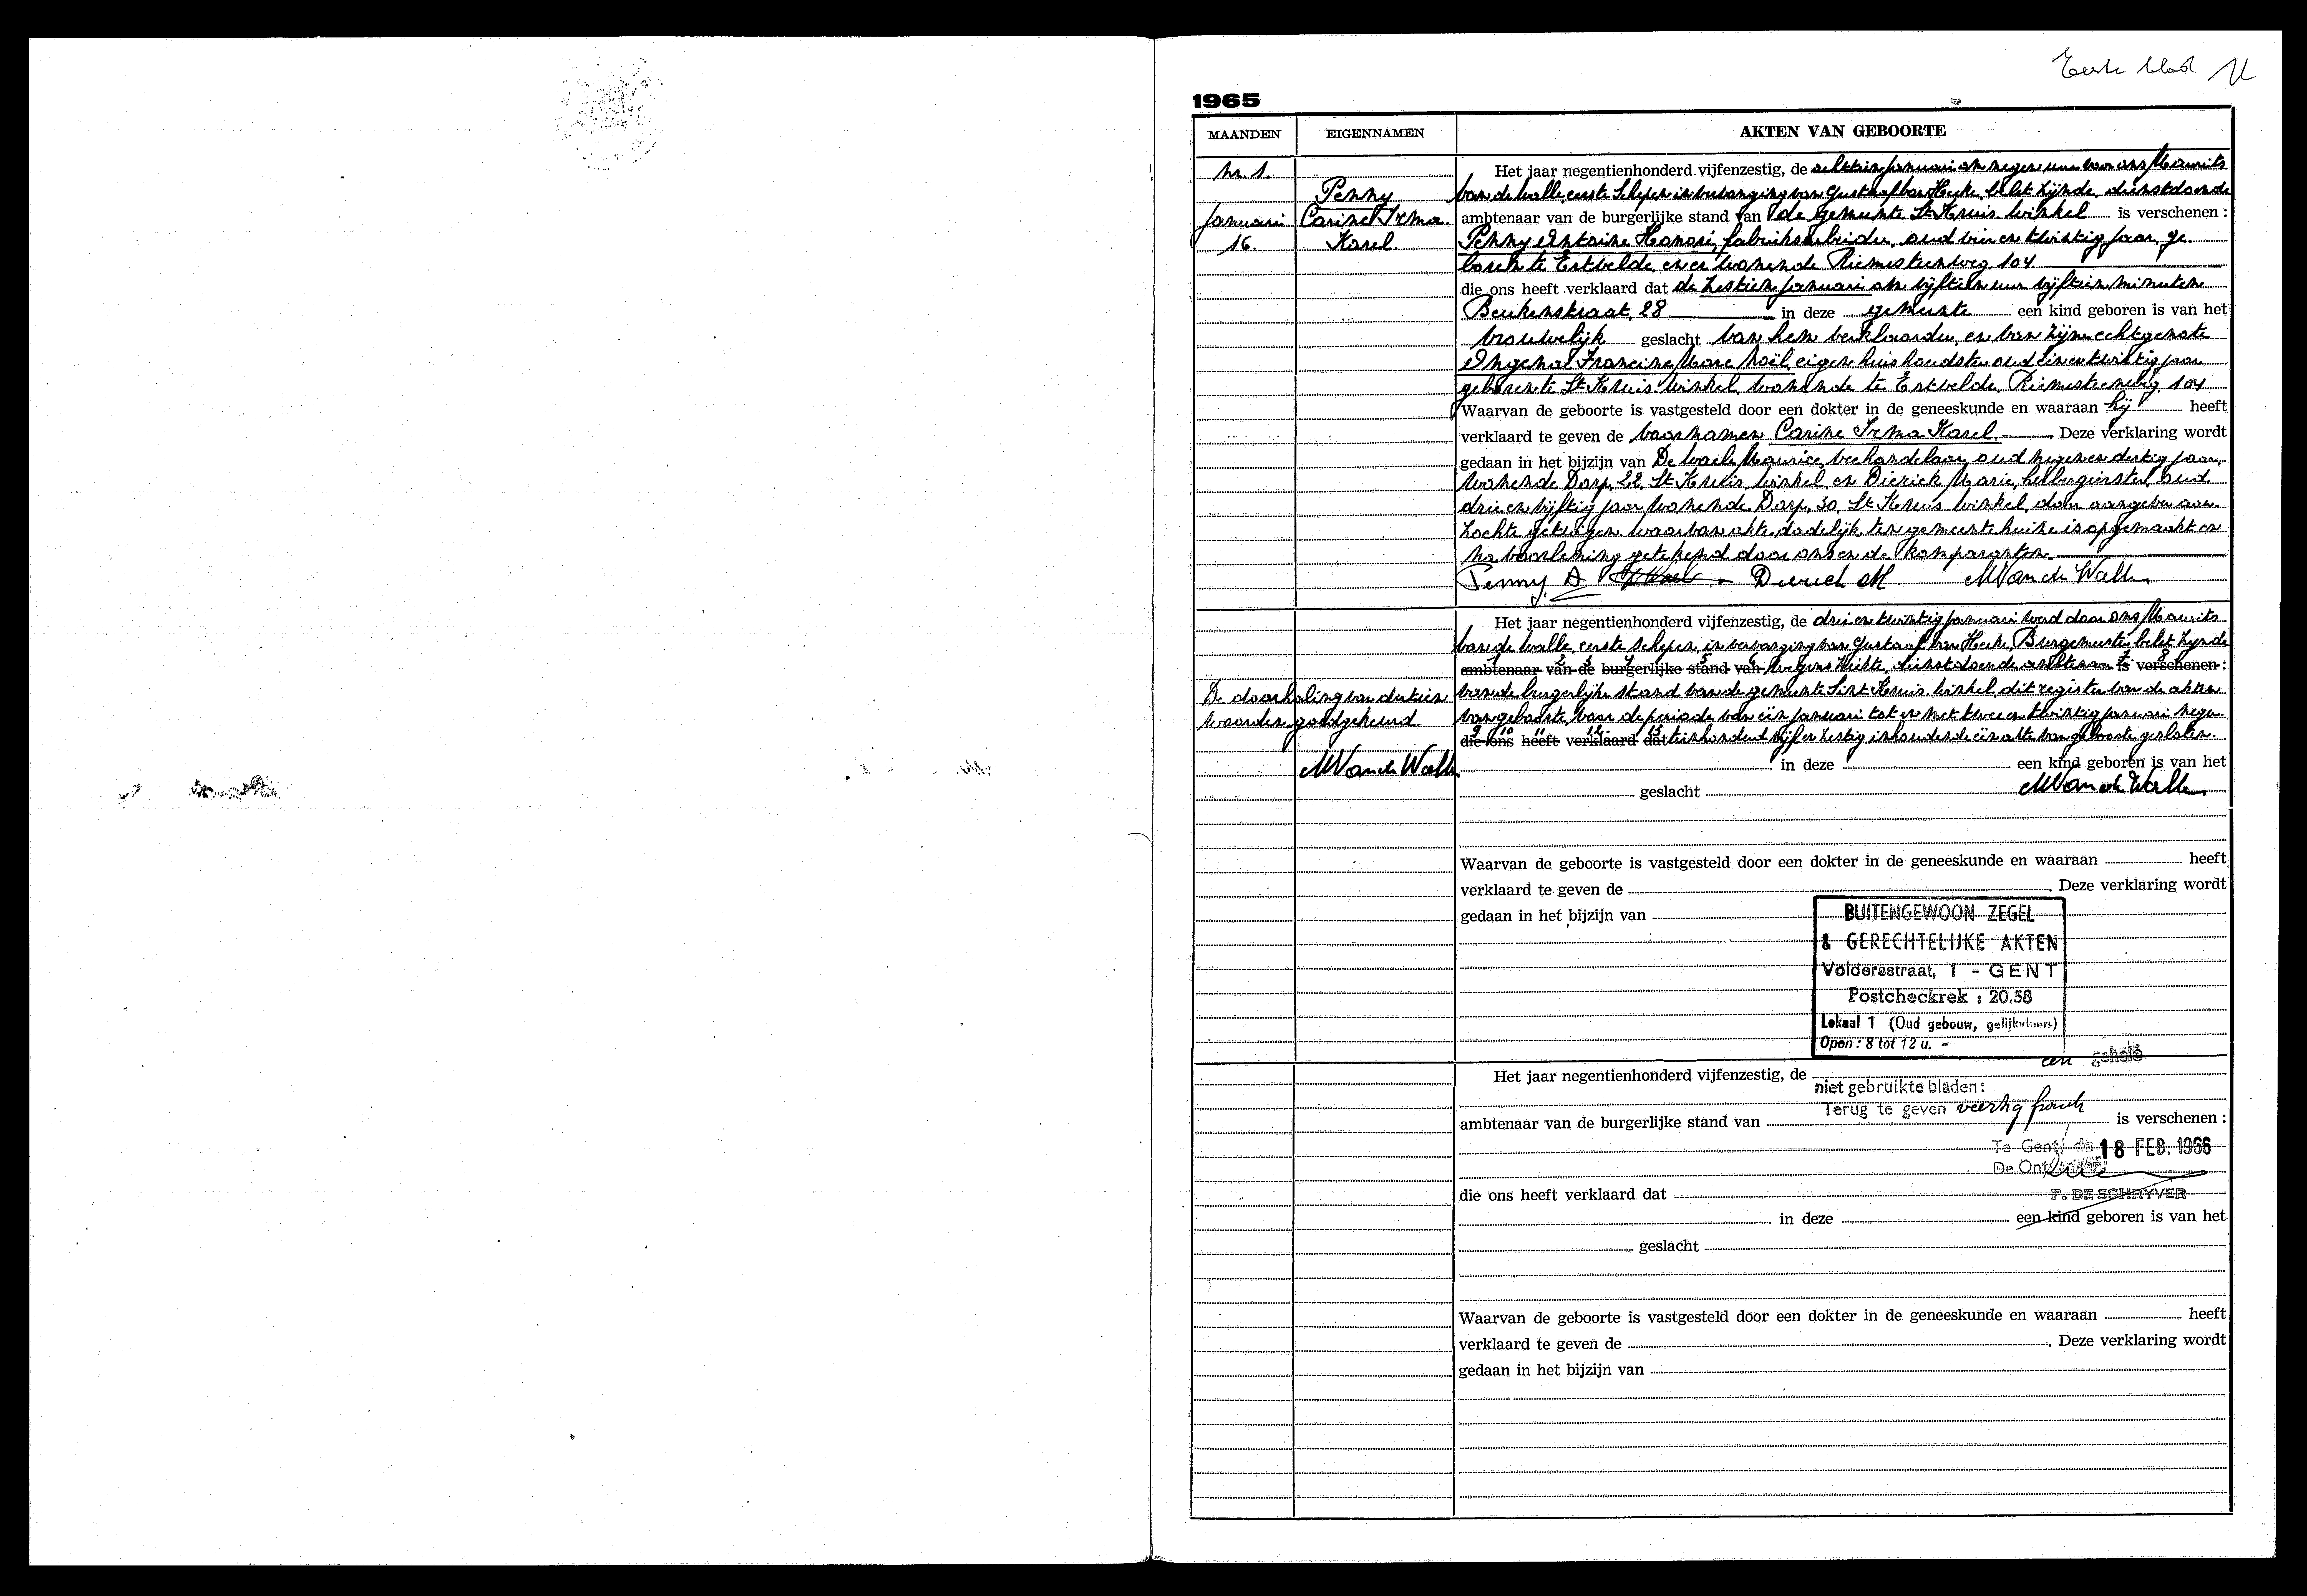 Eerste blad
1965
MAANDEN EIGENNAMEN AKTEN VAN GEBOORTE
Nr. 1.
Januari
16.
Penny
Carine Irma
Karel.
Het jaar negentienhonderd vijfenzestig, de achttien januari om negen uur voor ons Maurits
Van de Walle, eerste schepen in vervanging van Gustaaf Van Hecke, belet zijnde, dienstdoende
ambtenaar van de burgerlijke stand van de gemeente St. Kruis-Winkel is verschenen :
Penny Antoine Honoré, fabrieksarbeider, oud en twintig jaar, ge-
boren te Ertvelde en er wonende Riemesteenweg 104
die ons heeft verklaard dat de zestien januari om vijftien uur vijftien minuten
Beukenstraat, 28 in deze gemeente een kind geboren is van het
vrouwelijk geslacht van hem verklaarder, en van zijn echtgenote
Francine Marc Noël, eigen huishoudster oud éénentwintig jaar
geboren te St. Kruis-Winkel wonende te Ertvelde, Riemesteenweg 104
Waarvan de geboorte is vastgesteld door een dokter in de geneeskunde en waaraan hij heeft
verklaard te geven de voornamen Carine Irma Karel. Deze verklaring wordt
gedaan in het bijzijn van De Waele Maurice, veehandelaar, oud negenendertig jaar,
wonende Dorp, 22, St. Kruis-Winkel en Dierick Marie, herbergierster, oud
drieenvijftig jaar wonende Dorp, 30, St. Kruis-Winkel, door aangever aan-
zochte getuigen. waarvan akte dadelijk ten gemeentehuize is opgemaakt en
na voorlezing getekend door ons en de komparanten
Penny. A Dierick M. MVan de Walle
Het jaar negentienhonderd vijfenzestig, de drieentwintig januari werd door ons Maurits
Van de Walle, eerste schepen, in vervanging van Gustaaf Van Hecke, Burgemeester belet zijnde
ambtenaar van de burgerlijke stand van wegens ziekte, dienstdoende ambtenaar is verschenen :
van de burgerlijke stand van de gemeente Sint-Kruis-Winkel, dit register van de akten
van geboorte, voor de periode van één januari tot en met tweeentwintig januari negen-
die ons heeft verklaard dat tienhonderd vijf en zestig inhoudende één akte van geboorte gesloten.
De doorhaling van dertien
woorden goedgekeurd.
MVan de Walle
in deze een kind geboren is van het
geslacht MVan de Walle
Waarvan de geboorte is vastgesteld door een dokter in de geneeskunde en waaraan heeft
verklaard te geven de . Deze verklaring wordt
gedaan in het bijzijn van
BUITENGEWOON ZEGEL
& GERECHTELIJKE AKTEN
Voldersstraat, 1 - GENT
Postcheckrek : 20.58
Lokaal 1 (Oud gebouw, gelijkvloers)
Open : 8 tot 12 u. -
een gehele
Het jaar negentienhonderd vijfenzestig, de
niet gebruikte bladen :
Terug te geven veertig frank
ambtenaar van de burgerlijke stand van is verschenen :
Te Gent, de 18 FEB. 1966
De Ontvanger,
P. DE SCHRYVER
die ons heeft verklaard dat
in deze een kind geboren is van het
geslacht
Waarvan de geboorte is vastgesteld door een dokter in de geneeskunde en waaraan heeft
verklaard te geven de . Deze verklaring wordt
gedaan in het bijzijn van